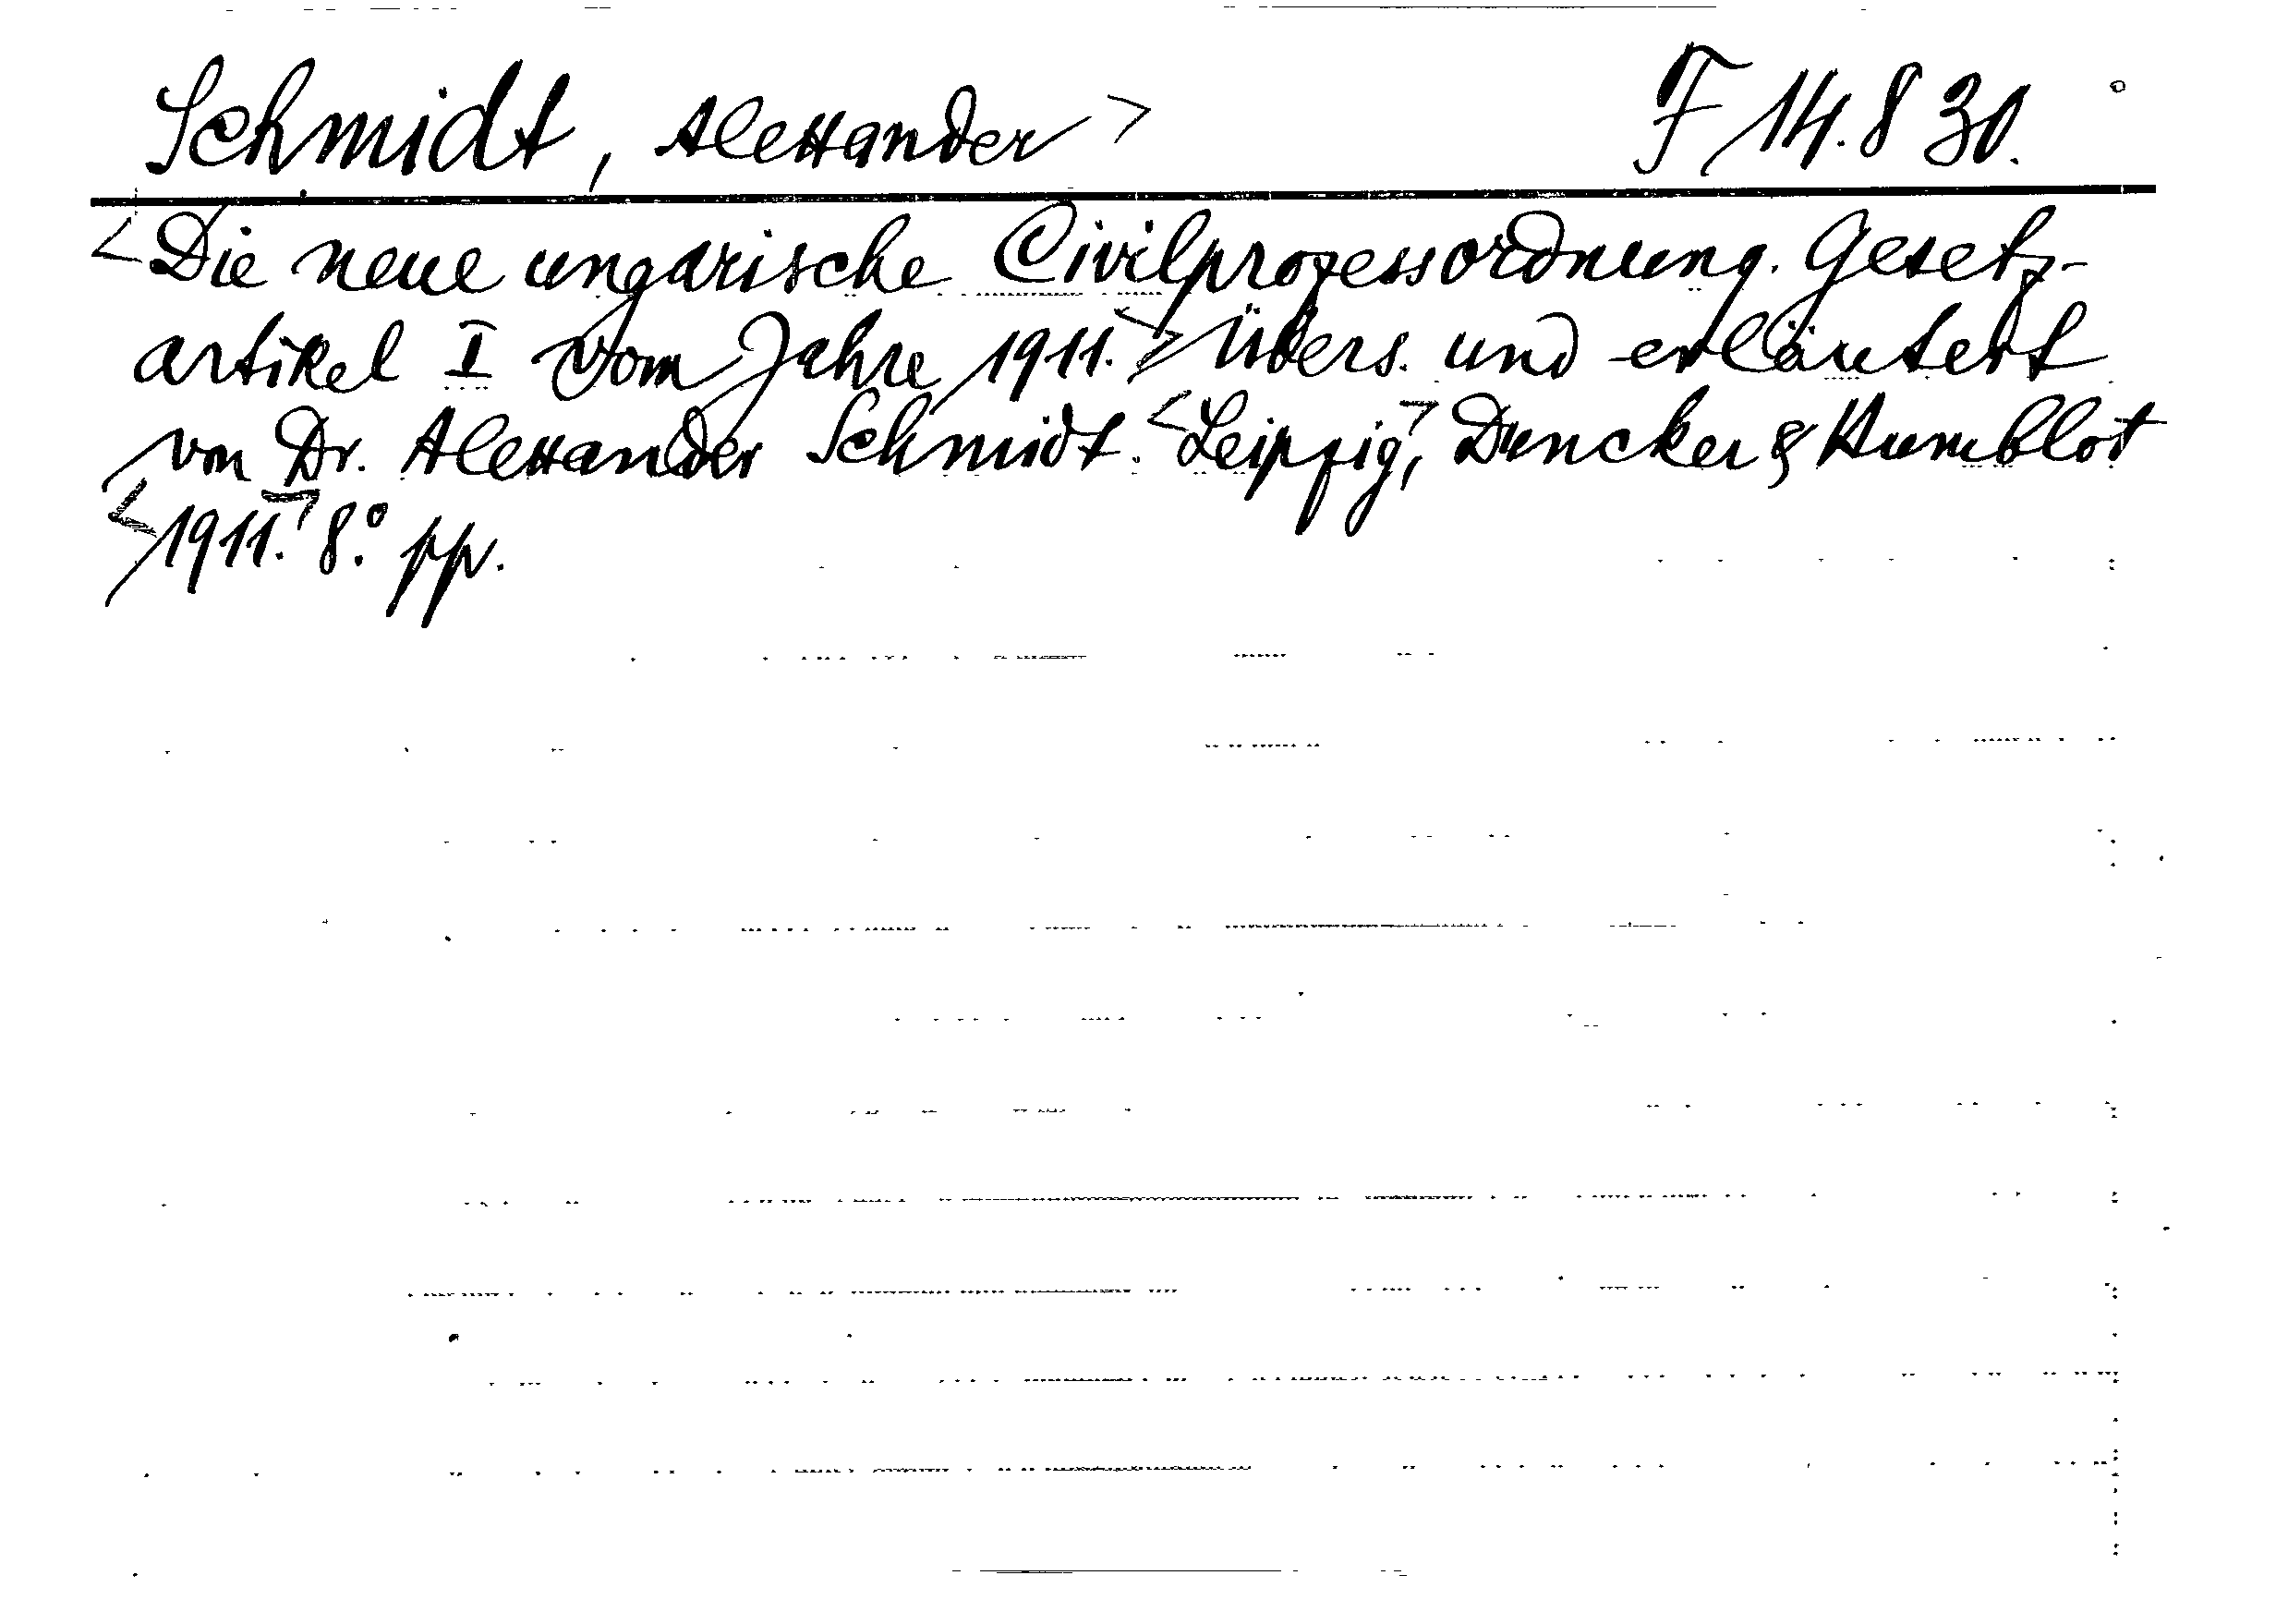 Schmidt, Alexander> F 14.830.
<Die neue ungarische Civilprozessordnung. Gesetz-
artikel I vom Jahre 1911.> Übers. und erläutert
von Dr. Alexander Schmidt. <Leipzig>, Duncker & Humblot
<1911.> 8.° pp.